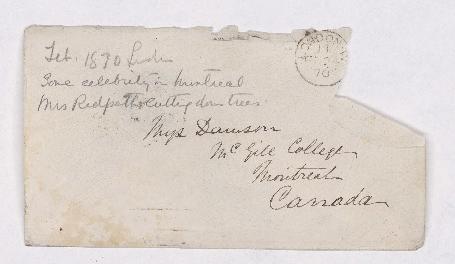 Feb. 1870 London
Some celebrity in Montreal
Mrs Redpath cutting down trees
LONDON
70
Miss Dawson
McGill College
Montreal
Canada